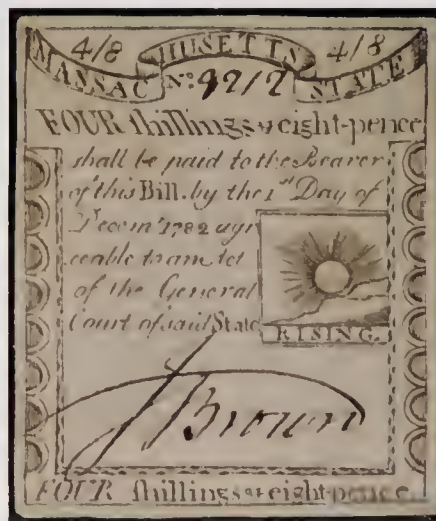 4/8 HUSETTS 4/8
MASSAC No: 9212 STATE
FOUR shillings & eight-pence
shall be paid to the Bearer
of this Bill. by the 1st Day of
Decemr. 1782 agre
eable to an Act
of the General
Court of said State
RISING.
J Brown
FOUR shillings & eight-pence